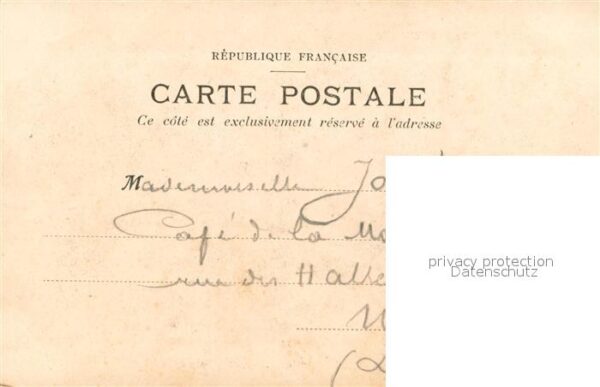 RÉPUBLIQUE FRANÇAISE
CARTE POSTALE
Ce côté est exclusivement réservé à l'adresse
Mademoiselle
Café de la
rue des
privacy protection
Datenschutz